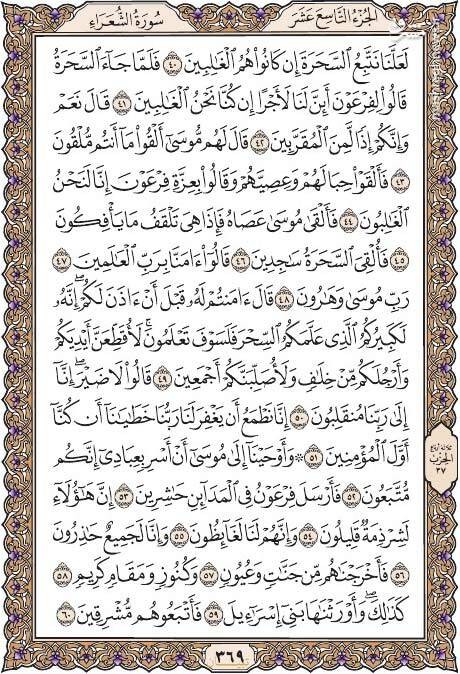 الجزء التاسع عشر
سورة الشعراء
لَعَلَّنَا نَتَّبِعُ ٱلسَّحَرَةَ إِن كَانُوا۟ هُمُ ٱلْغَٰلِبِينَ ۝٤٠ فَلَمَّا جَآءَ ٱلسَّحَرَةُ
قَالُوا۟ لِفِرْعَوْنَ أَئِنَّ لَنَا لَأَجْرًا إِن كُنَّا نَحْنُ ٱلْغَٰلِبِينَ ۝٤١ قَالَ نَعَمْ
وَإِنَّكُمْ إِذًا لَّمِنَ ٱلْمُقَرَّبِينَ ۝٤٢ قَالَ لَهُم مُّوسَىٰٓ أَلْقُوا۟ مَآ أَنتُم مُّلْقُونَ
۝٤٣ فَأَلْقَوْا۟ حِبَالَهُمْ وَعِصِيَّهُمْ وَقَالُوا۟ بِعِزَّةِ فِرْعَوْنَ إِنَّا لَنَحْنُ
ٱلْغَٰلِبُونَ ۝٤٤ فَأَلْقَىٰ مُوسَىٰ عَصَاهُ فَإِذَا هِىَ تَلْقَفُ مَا يَأْفِكُونَ
۝٤٥ فَأُلْقِىَ ٱلسَّحَرَةُ سَٰجِدِينَ ۝٤٦ قَالُوٓا۟ ءَامَنَّا بِرَبِّ ٱلْعَٰلَمِينَ ۝٤٧
رَبِّ مُوسَىٰ وَهَٰرُونَ ۝٤٨ قَالَ ءَامَنتُمْ لَهُۥ قَبْلَ أَنْ ءَاذَنَ لَكُمْ ۖ إِنَّهُۥ
لَكَبِيرُكُمُ ٱلَّذِى عَلَّمَكُمُ ٱلسِّحْرَ فَلَسَوْفَ تَعْلَمُونَ ۚ لَأُقَطِّعَنَّ أَيْدِيَكُمْ
وَأَرْجُلَكُم مِّنْ خِلَٰفٍ وَلَأُصَلِّبَنَّكُمْ أَجْمَعِينَ ۝٤٩ قَالُوا۟ لَا ضَيْرَ ۖ إِنَّآ
إِلَىٰ رَبِّنَا مُنقَلِبُونَ ۝٥٠ إِنَّا نَطْمَعُ أَن يَغْفِرَ لَنَا رَبُّنَا خَطَٰيَٰنَآ أَن كُنَّآ
أَوَّلَ ٱلْمُؤْمِنِينَ ۝٥١ ۞ وَأَوْحَيْنَآ إِلَىٰ مُوسَىٰٓ أَنْ أَسْرِ بِعِبَادِىٓ إِنَّكُم
مُّتَّبَعُونَ ۝٥٢ فَأَرْسَلَ فِرْعَوْنُ فِى ٱلْمَدَآئِنِ حَٰشِرِينَ ۝٥٣ إِنَّ هَٰٓؤُلَآءِ
لَشِرْذِمَةٌ قَلِيلُونَ ۝٥٤ وَإِنَّهُمْ لَنَا لَغَآئِظُونَ ۝٥٥ وَإِنَّا لَجَمِيعٌ حَٰذِرُونَ
۝٥٦ فَأَخْرَجْنَٰهُم مِّن جَنَّٰتٍ وَعُيُونٍ ۝٥٧ وَكُنُوزٍ وَمَقَامٍ كَرِيمٍ ۝٥٨
كَذَٰلِكَ ۖ وَأَوْرَثْنَٰهَا بَنِىٓ إِسْرَٰٓءِيلَ ۝٥٩ فَأَتْبَعُوهُم مُّشْرِقِينَ ۝٦٠
الحزب
٣٧
٣٦٩